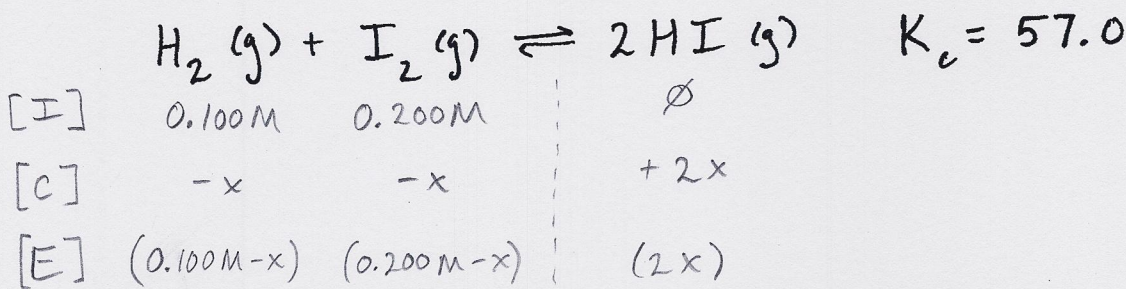 H₂ (g) + I₂ (g) ⇌ 2 H I (g) K_c = 57.0
[I] 0.100M 0.200M ∅
[C] -x -x + 2x
[E] (0.100M-x) (0.200M-x) (2x)